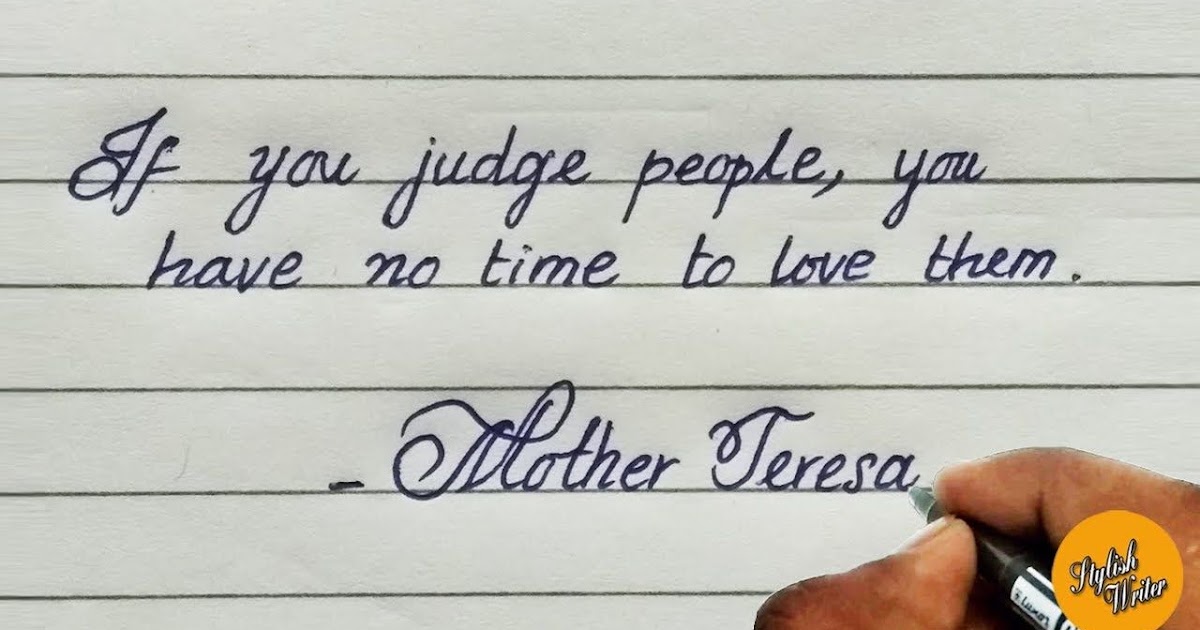 If you judge people, you
have no time to love them.
- Mother Teresa
Luxor
Stylish
Writer